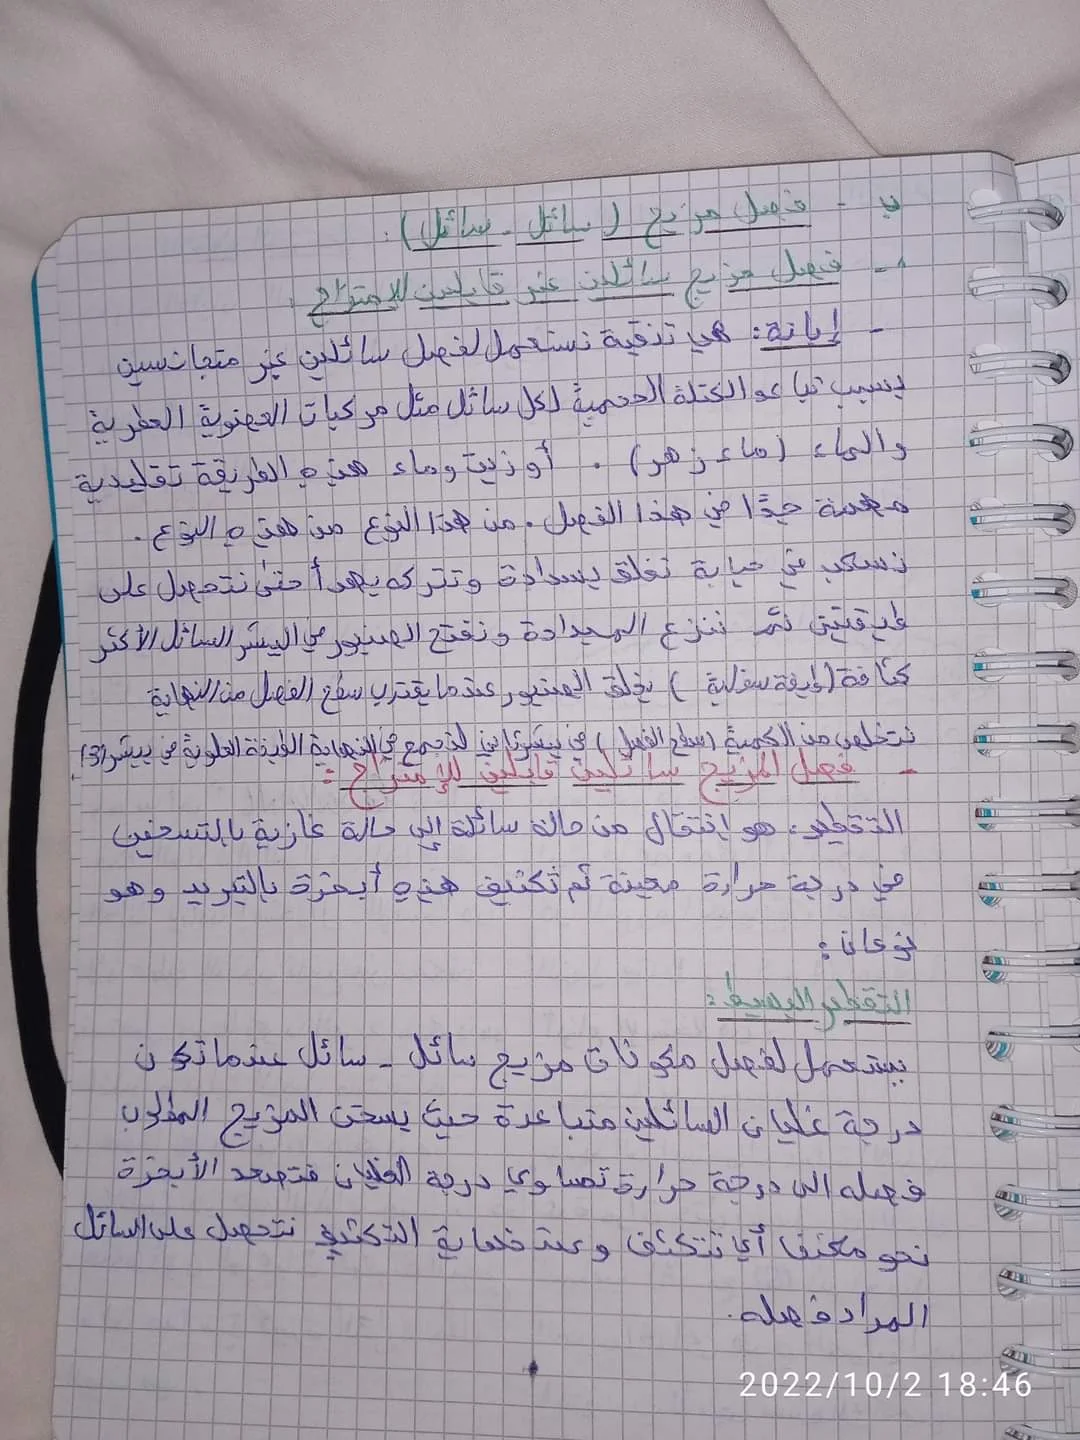 ب - فصل مزيج (سائل - سائل).
1 - فصل مزيج سائلين غير قابلين للإمتزاج.
- إبانة: هي تنقية نستعمل لفصل سائلين غير متجانسين
بسبب تباعد الكتلة الحجمية لكل سائل مثل مركبات العضوية العطرية
والماء (ماء زهر). أو زيت وماء هذه الطريقة تقليدية
مهمة جدًا في هذا الفصل. من هذا النوع من هذه النوع.
نسكب في حبابة تغلق بسدادة وتتركه يهدأ حتى نتحصل على
طبقتين ثم ننزع السدادة ونفتح الصنبور في البيشر السائل الأكثر
كثافة (طبقة سفلية) يغلق الصنبور عندما يقترب سطح الفصل من النهاية
نتخلص من الكمية (سطح الفصل) في بيشر ثاني لنجمع في النهاية الطبقة العلوية في بيشر (3)
- فصل المزيج سائلين قابلين للإمتزاج:
التقطير: هو إنتقال من حالة سائلة إلى حالة غازية بالتسخين
في درجة حرارة معينة ثم تكثيف هذه أبخرة بالتبريد وهو
نوعان:
التقطير البسيط:
يستعمل لفصل مكونات مزيج سائل - سائل عندما تكون
درجة غليان السائلين متباعدة حيث يسخن المزيج المطلوب
فصله الى درجة حرارة تساوي درجة الغليان فتصعد الأبخرة
نحو مكثف أي تتكثف وعند نهاية التكثيف نتحصل على السائل
المراد فصله.
2022/10/2 18:46